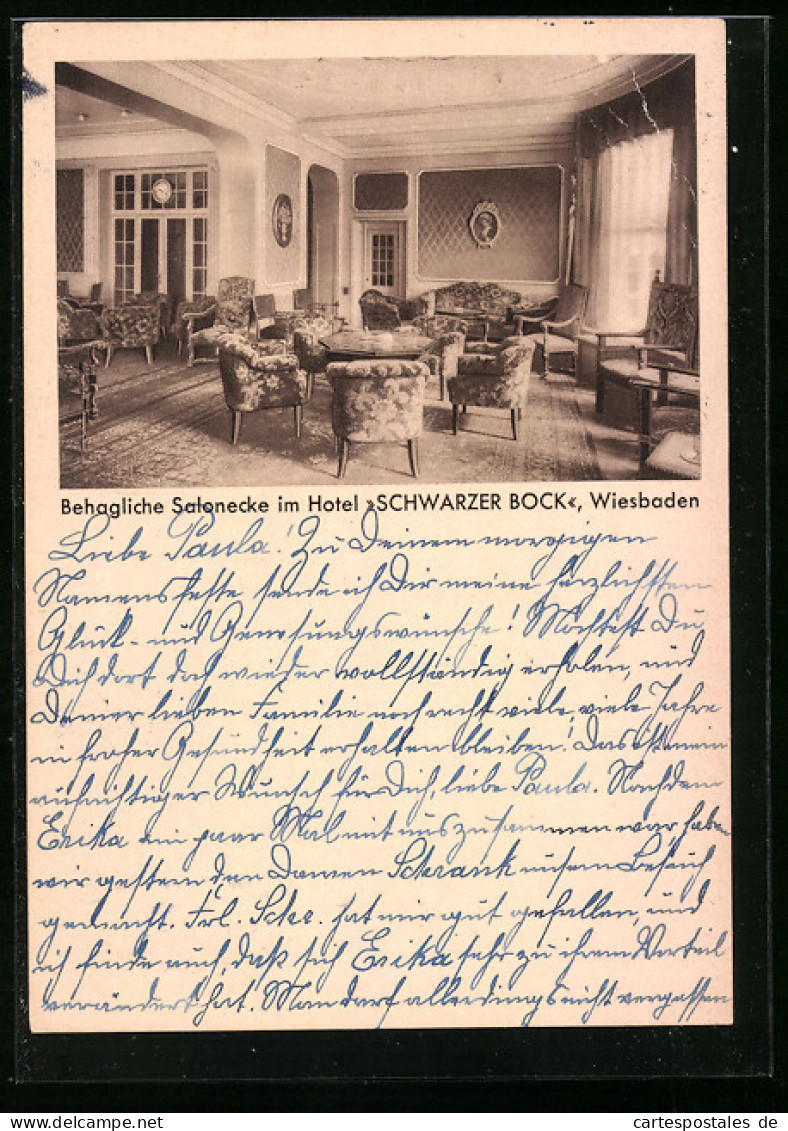 Behagliche Salonecke im Hotel »SCHWARZER BOCK«, Wiesbaden
Liebe Paula! Zu Deinem morgigen
Namensfeste sende ich Dir meine herzlichsten
Glück- und Genesungswünsche! Möchtest Du
Dich dort doch wieder vollständig erholen, und
Deiner lieben Familie noch recht viele, viele Jahre
in froher Gesundheit erhalten bleiben! Das ist mein
aufrichtiger Wunsch für Dich, liebe Paula. Nachdem
Erika ein paar Mal mit uns zusammen war, haben
wir gestern den Damen Schrank unsern Besuch
gemacht. Frl. Schr. hat mir gut gefallen, und
ich finde auch, daß sich Erika sehr zu ihrem Vorteil
verändert hat. Man darf allerdings nicht vergessen
cartespostales.de